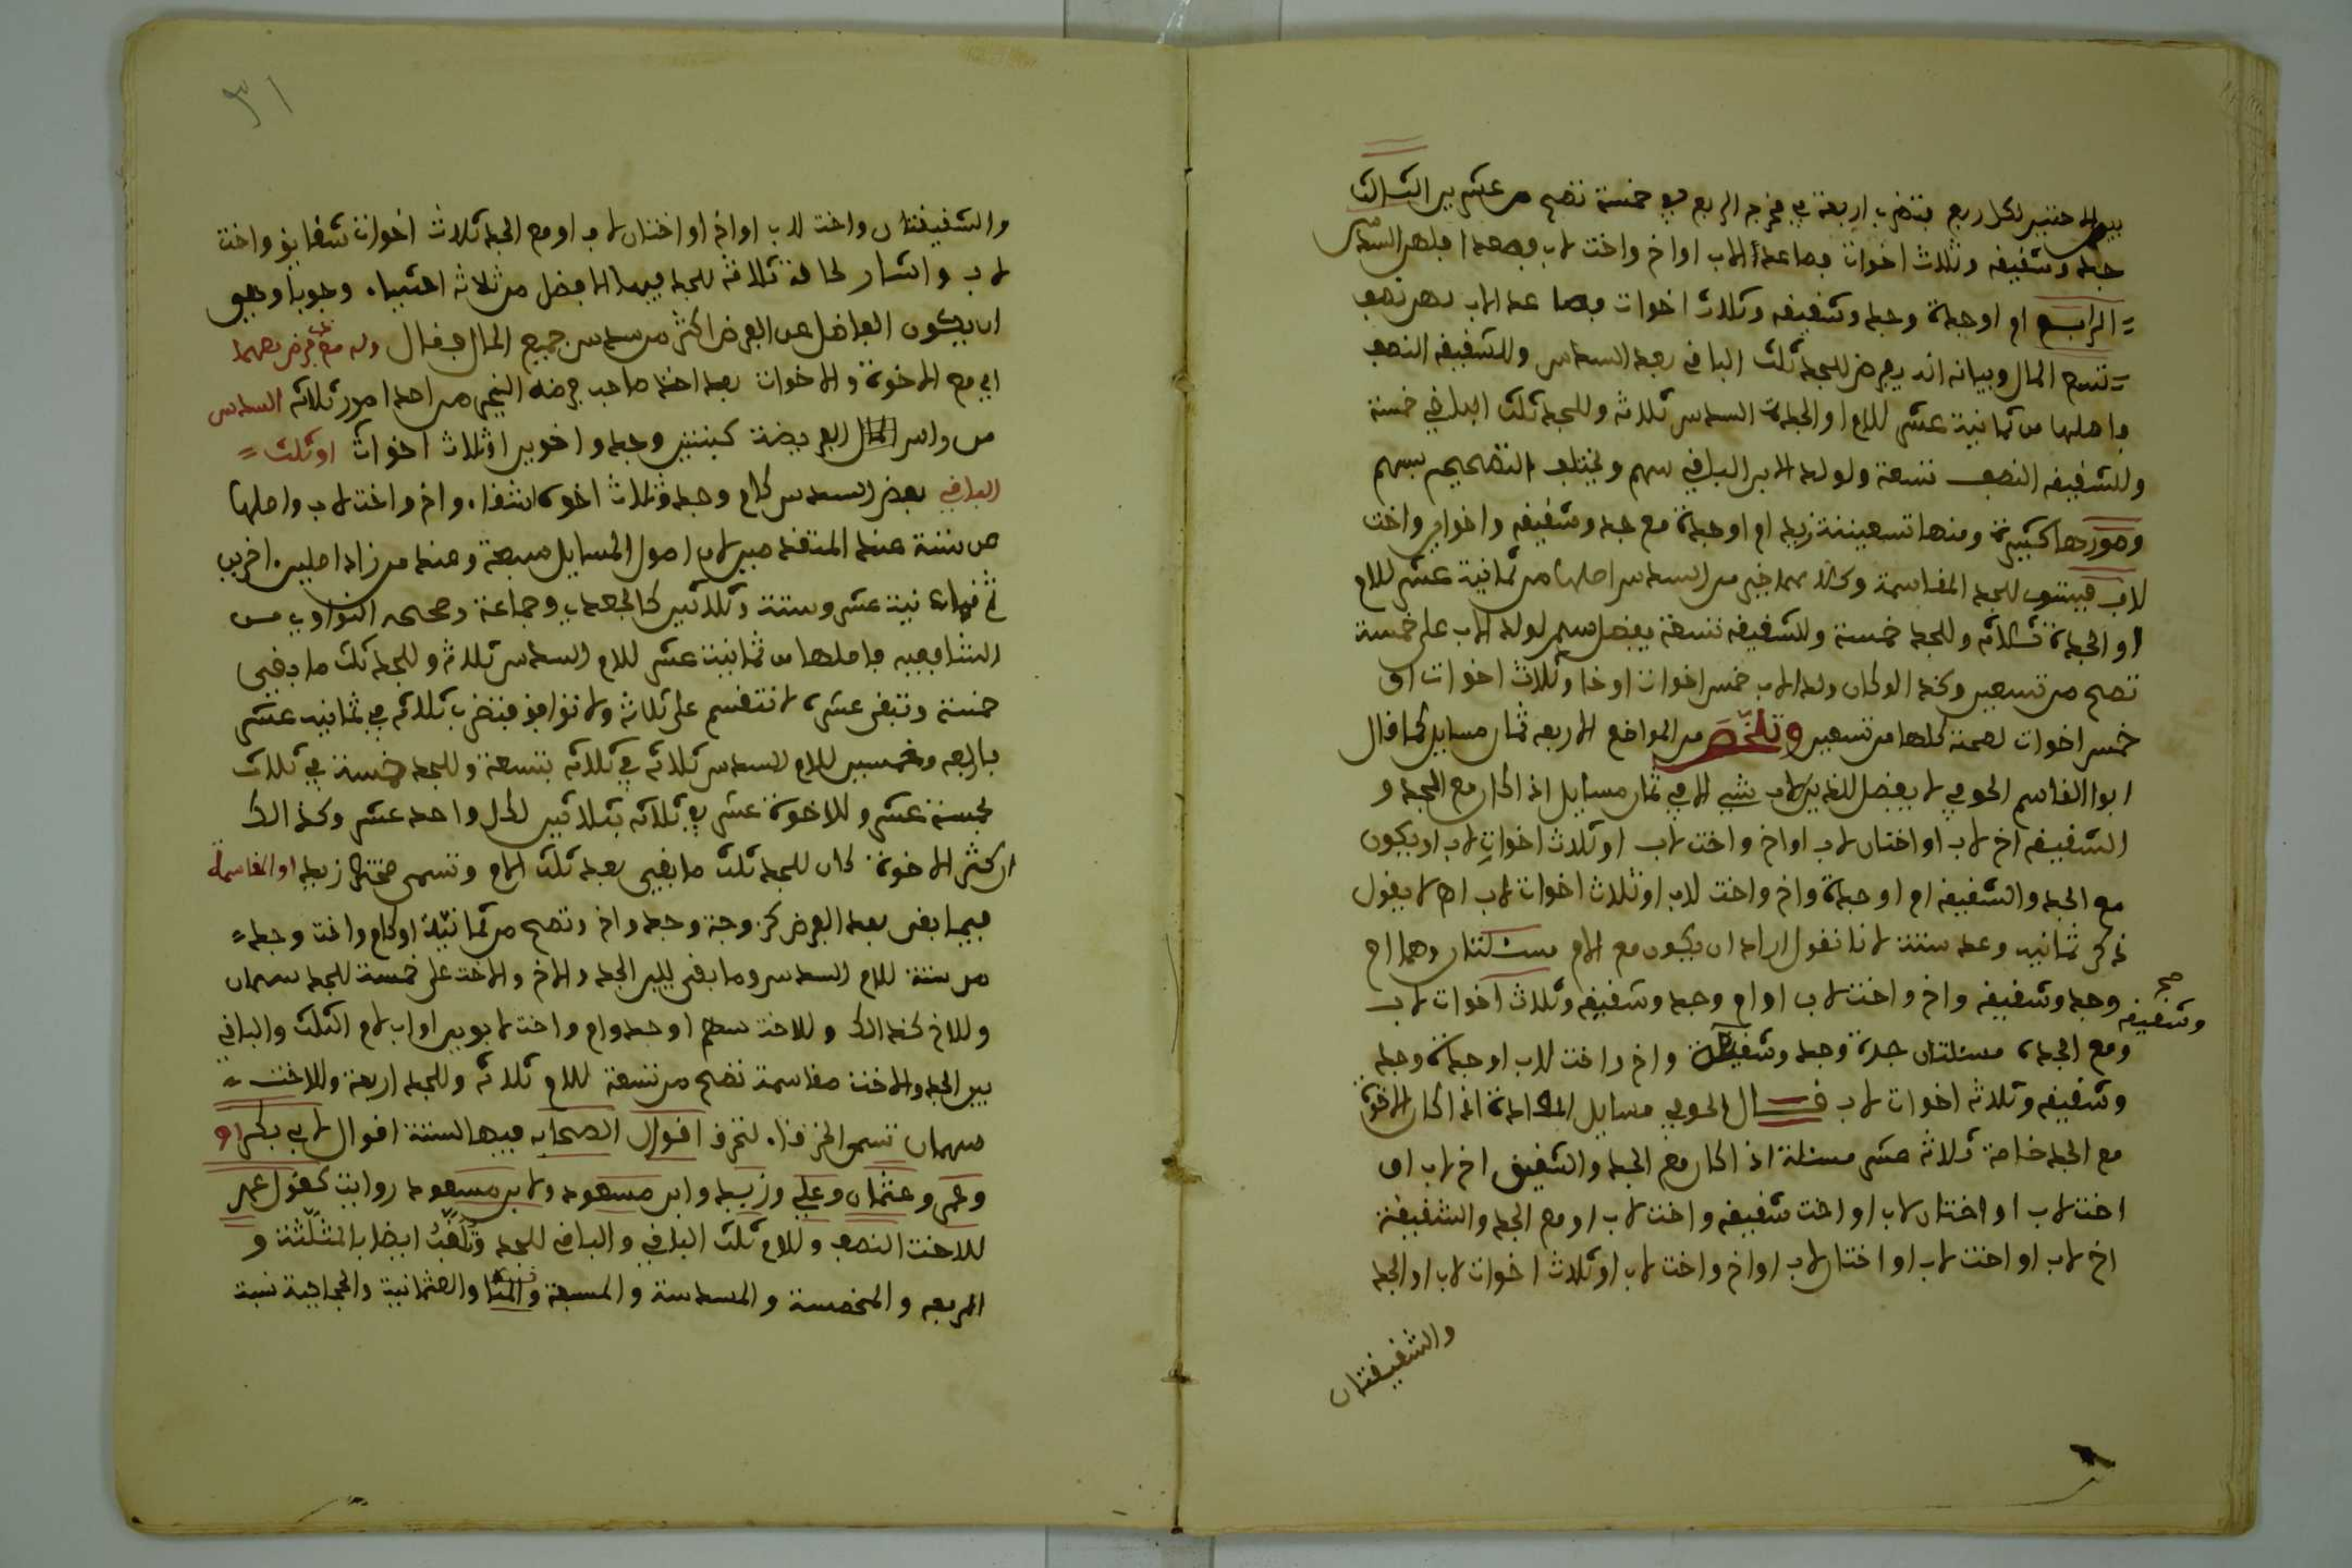 بين الاختين لكل ربع فتضرب اربعة في مخرج الربع في خمسة تصح من عشرين الثالث
جد وشقيقه وثلاث اخوات فصاعدا لاب او اخ واخت لاب فصعدا فلهن السدس
الرابع ام او جدة وجد وشقيقه وثلاث اخوات فصاعدا لاب لهن نصف
تسع المال وبيانه انه يفرض للجد ثلث الباقي بعد السدس وللشقيقه النصف
واصلها من ثمانية عشر للام او الجدة السدس ثلاثه وللجد ثلث الباقي خمسة
وللشقيقه النصف تسعة ولولد الاب الباقي سهم ويختلف التصحيح بهم
وصورها كثيرة ومنها تسعينية زيد ام او جدة مع جد وشقيقه واخوين واخت
لاب فيستوي للجد المقاسمة وثلث خير من السدس اصلها من ثمانية عشر للام
او الجدة ثلاثه وللجد خمسة وللشقيقه تسعة يفضل سهم لولد الاب على خمسة
تصح من تسعين وكذا لو كان ولد الاب خمس اخوات او اخا وثلاث اخوات او
خمس اخوات لصحة كلها من تسعين وتلخص من المواضع الاربعه ثمان مسايل كما قال
ابوا القاسم الحوفي لا يفضل للذين لاب شيء الا في ثمان مسايل اذا كان مع الجد و
الشقيقه اخ لاب او اختان لاب او اخ واخت لاب او ثلاث اخوات لاب او يكون
مع الجد والشقيقه ام او جدة واخ واخت لاب او ثلاث اخوات لاب اه لا يقول
ذكر ثمانيه وعد ستة لانا نقول اراد ان يكون مع الام مسئلتان وهما ام
وجد وشقيقه واخ واخت لاب او ام وجد وشقيقه وثلاث اخوات لاب
وشقيقه صح
ومع الجدة مسئلتان جدة وجد وشقيقة واخ واخت لاب او جدة وجد
وشقيقه وثلاثه اخوات لاب قال الحوفي مسايل المعادة اذا كان الاخوة
مع الجد خاصة ثلاثه عشر مسئلة اذا كان مع الجد والشقيق اخ لاب او
اخت لاب او اختان لاب او اخت شقيقه واخت لاب او مع الجد والشقيقة
اخ لاب او اخت لاب او اختان لاب او اخ واخت لاب او ثلاث اخوات لاب او الجد
والشقيقتان
٣١
والشقيقتان واخت لاب او اخ او اختان لاب او مع الجد ثلاث اخوات شقايق واخت
لاب واشار لحالة ثلاثة للجد فيها الافضل من ثلاثه اشياء وجوبا وهي
ان يكون الفاضل عن الفرض اكثر من سدس جميع المال فقال وله مع ذي فرض معهما
اي مع الاخوة والاخوات بعد اخذ صاحب فرضه الخير من احد امور ثلاثه السدس
من راس المال الفريضة كبنتين وجد واخوين او ثلاث اخوات او ثلث
الباقي بعد السدس كام وجد وثلاث اخوة اشقاء واخ واخت لاب واصلها
من ستة عند المتقدمين لان اصول المسايل سبعة وعند من زاد اصلين اخرين
ثمانية عشر وستة وثلاثين كالجعدي وجماعة وصححه النواوي من
الشافعيه واصلها من ثمانية عشر للام السدس ثلاثه وللجد ثلث ما بقي
خمسة وتبقى عشرة لا تنقسم على ثلاثه ولا توافق فتضرب ثلاثه في ثمانيه عشر
باربعه وخمسين للام السدس ثلاثه في ثلاثه بتسعة وللجد خمسة في ثلاث
بخمسة عشر وللاخوة عشر في ثلاثه بثلاثين لكل واحد عشر وكذلك
ان كثر الاخوة كان للجد ثلث ما بقي بعد ثلث الام وتسمى مختصرة زيد او المقاسمة
فيما بقى بعد الفرض كزوجة وجد واخ وتصح من ثمانية او كام واخت وجد
من ستة للام السدس وما بقى لبين الجد والاخ والاخت على خمسة للجد سهمان
وللاخ كذلك وللاخت سهم او جد وام واخت لابوين او اب للام الثلث والباقي
بين الجد والاخت مقاسمة تصح من تسعة للام ثلاثه وللجد اربعة وللاخت
سهمان تسمى الخرقاء لتخرق اقوال الصحابه فيها الستة اقوال لابي بكر و
وعمر وعثمان وعلي وزيد وابن مسعود ولابن مسعود رواية كقول عمر
للاخت النصف وللام ثلث الباقي والباقي للجد وتلقب ايضا بالمثلثة و
المربعه والمخمسة والمسدسة والمسبعة والمثمنة والعثمانية والحجاجية نسبة